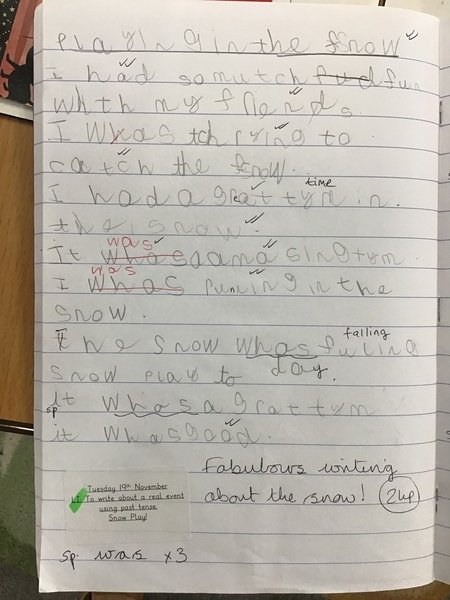 playing in the snow
I had somutch fun
whith my friends.
I whas tchrying to
catch the snow.
time
I had a great tym in
the snow.
was
it whas amasing tym
was
I whas runing in the
snow.
falling
the snow whas fuling
snow play to day.
sp it whas a grat tym
it whas good.
Fabulous writing
about the snow! 2hp
Tuesday 19th November
LI To write about a real event
using past tense
Snow Play!
sp. was x3